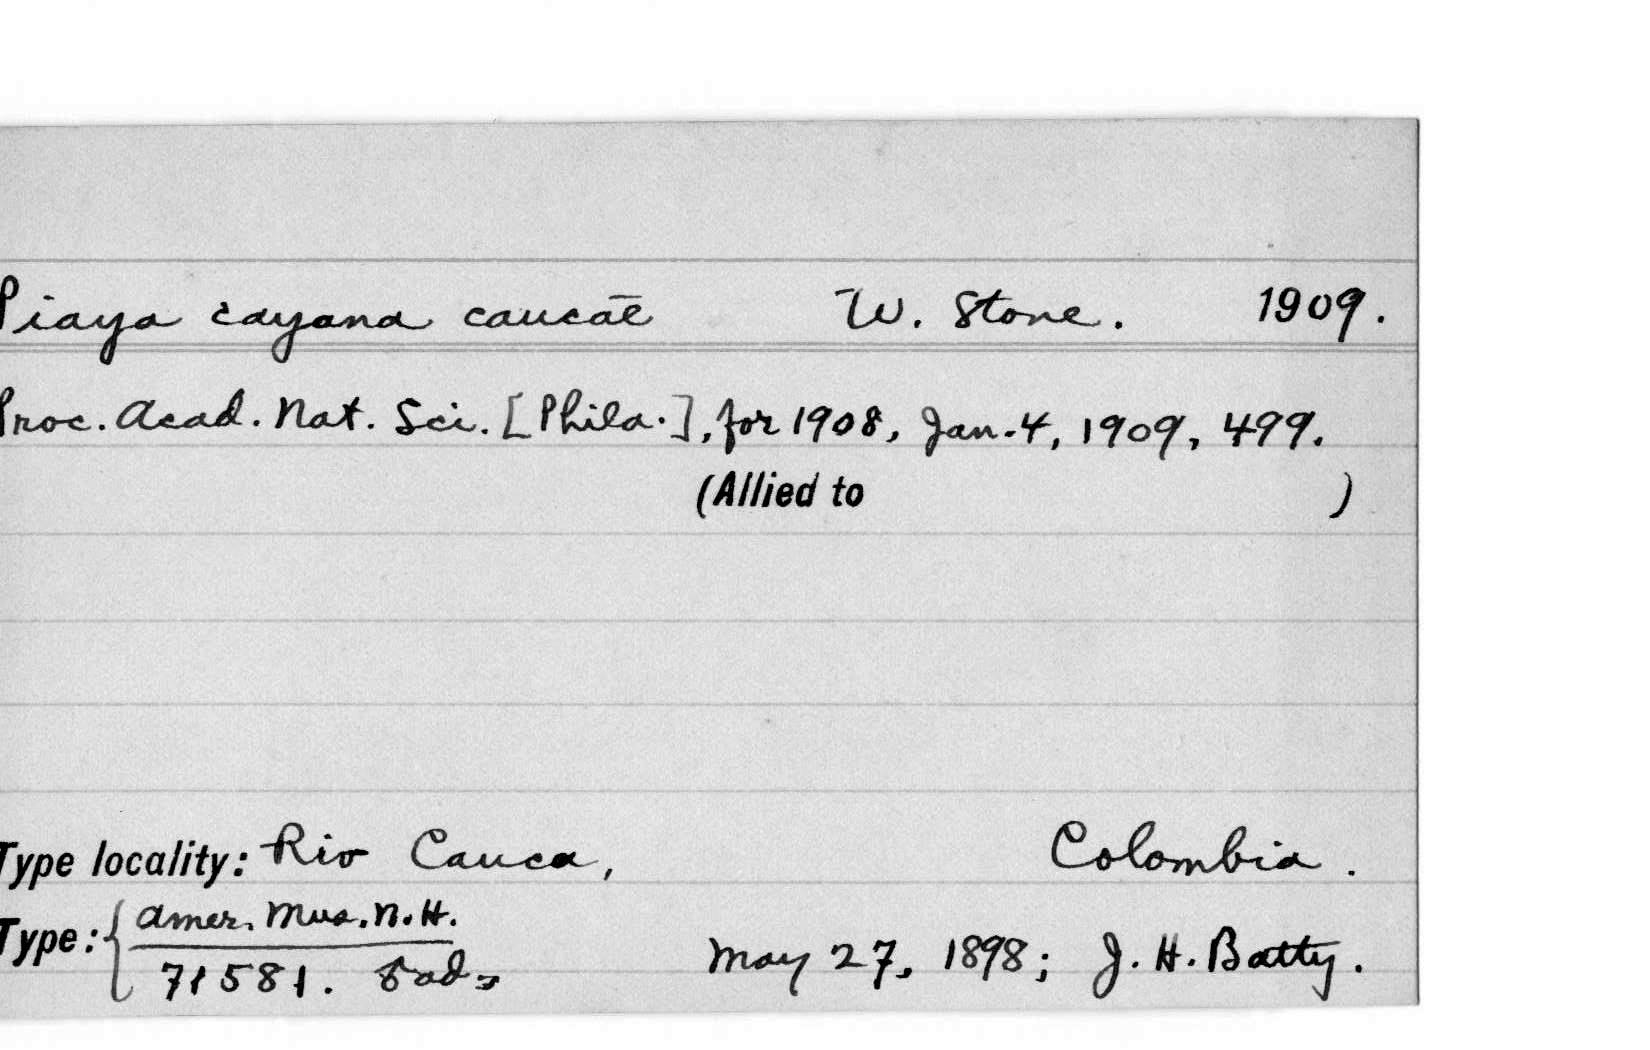 Piaya cayana caucae W. Stone. 1909.
Proc. Acad. Nat. Sci. [Phila.], for 1908, Jan. 4, 1909, 499.
(Allied to )
Type locality: Rio Cauca, Colombia.
Type: { Amer. Mus. N. H.
71581. ad. May 27, 1898; J. H. Batty.